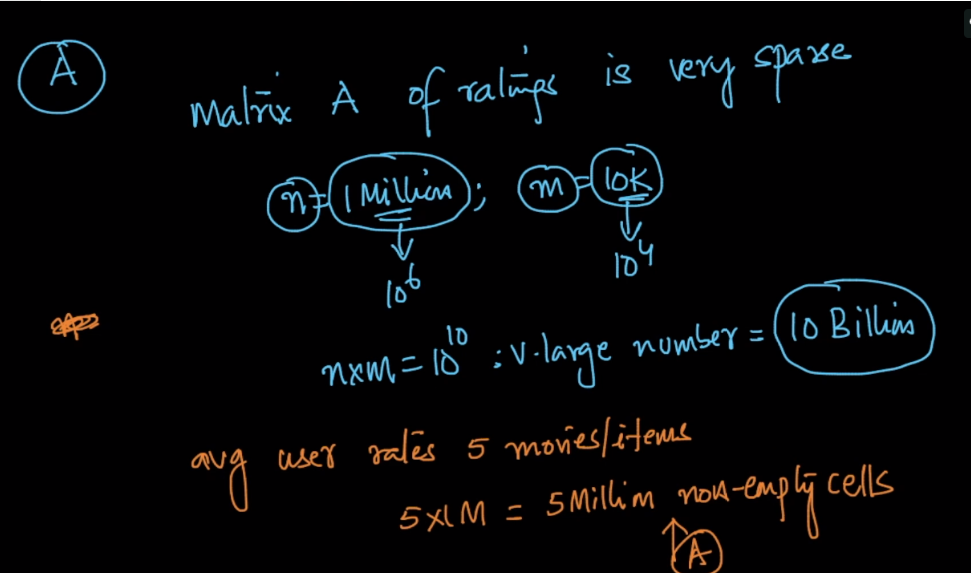 A
Matrix A of ratings is very sparse
n = 1 Million ; m = 10K
10⁶ 10⁴
n×m = 10¹⁰ ; v.large number = 10 Billion
avg user rates 5 movies/items
5×1M = 5 Million non-empty cells
A